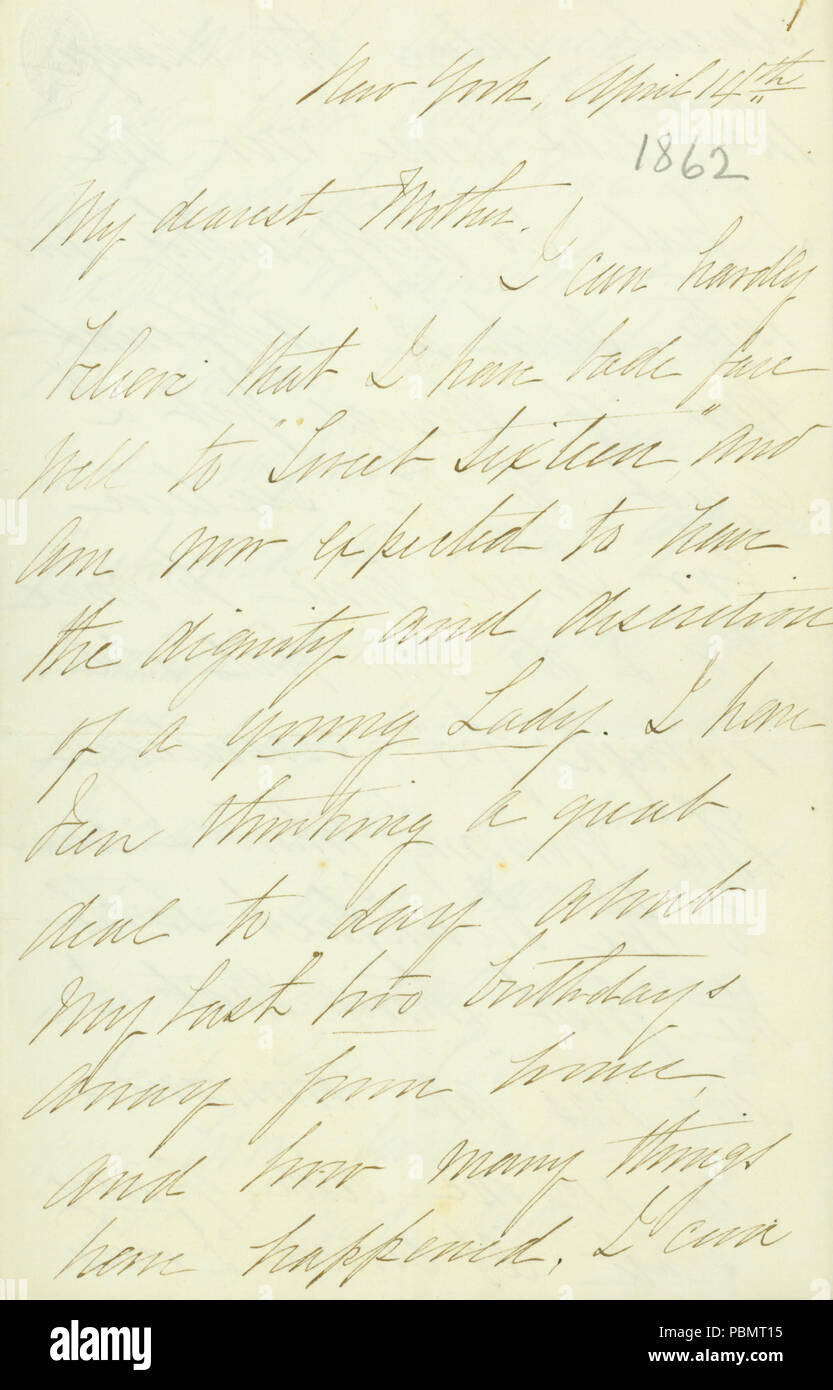 1
New York, April 14th
1862
My dearest Mother.
I can hardly
believe that I have bade fare
well to "Sweet Sixteen", and
am now expected to have
the dignity and discretion
of a young Lady. I have
been thinking a great
deal to day about
my last two birthdays
away from home,
and how many things
have happened. I can
alamy
Image ID: PBMT15
www.alamy.com